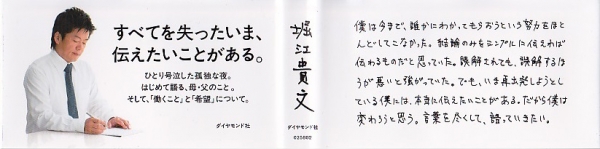 すべてを失ったいま、
伝えたいことがある。
ひとり号泣した孤独な夜。
はじめて語る、母・父のこと。
そして、「働くこと」と「希望」について。
ダイヤモンド社
堀江貴文
ダイヤモンド社
025802
僕は今まで、誰かにわかってもらおうという努力をほと
んどしてこなかった。結論のみをシンプルに伝えれば
伝わるものだと思っていた。誤解されても、誤解するほ
うが悪いと強がっていた。でも、いま再出発しようとし
ている僕には、本当に伝えたいことがある。だから僕は
変わろうと思う。言葉を尽くして、語っていきたい。